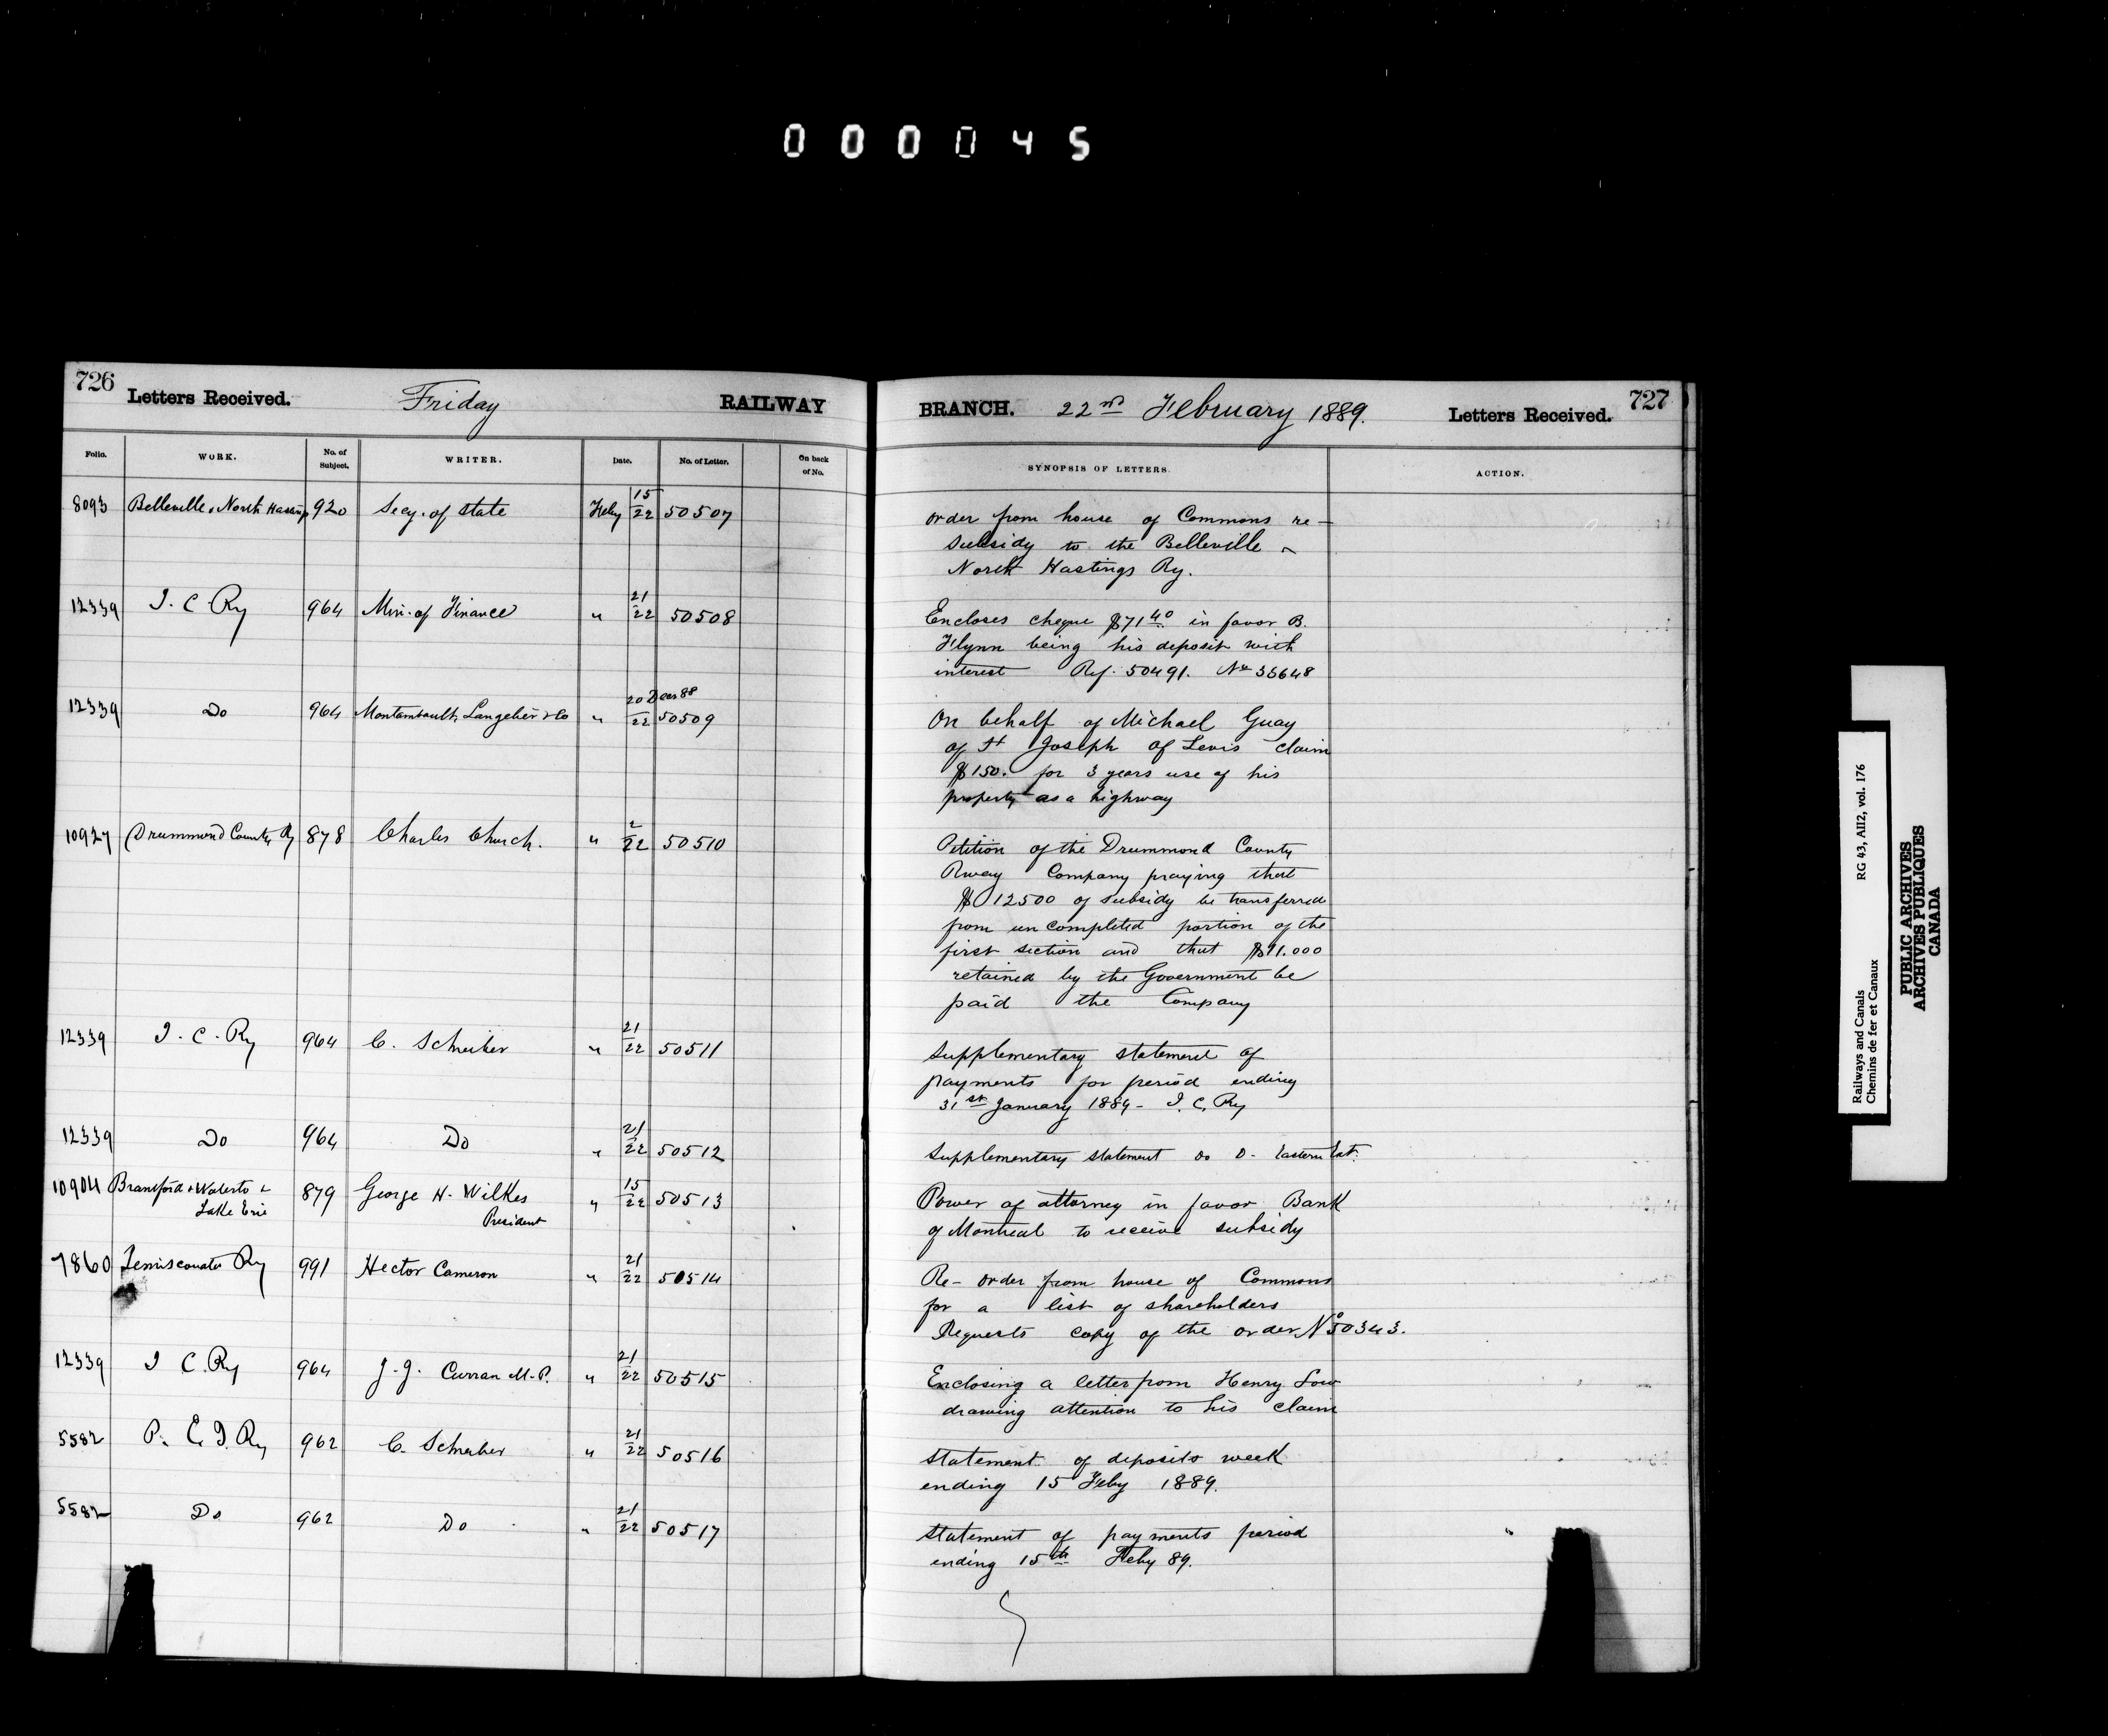 000045
726
Letters Received.
Friday
RAILWAY
BRANCH.
22nd February 1889.
Letters Received.
727
Folio.
WORK.
No. of Subject.
WRITER.
Date.
No. of Letter.
On back of No.
SYNOPSIS OF LETTERS.
ACTION.
8093 Belleville & North Hastings 920 Secy. of State Feby 15/22 50507
order from house of Commons re-
subsidy to the Belleville &
North Hastings Ry.
12339 I. C. Ry 964 Min. of Finance " 21/22 50508
Encloses cheque $71 40 in favor B.
Flynn being his deposit with
interest Ref. 50491. No 35648
12339 Do 964 Montambault, Langelier & Co " 20 Decr 88/22 50509
On behalf of Michael Guay
of St Joseph of Levis claim
$150. for 3 years use of his
property as a highway
10927 Drummond County Ry 878 Charles Church. " 2/22 50510
Petition of the Drummond County
Rway Company praying that
$12500 of subsidy be transferred
from uncompleted portion of the
first section and that $11.000
retained by the Government be
paid the Company
12339 I. C. Ry 964 C. Schreiber " 21/22 50511
Supplementary statement of
payments for period ending
31st January 1889 - I. C. Ry
12339 Do 964 Do " 21/22 50512
Supplementary statement do D. Eastern Ext.
10904 Brantford & Waterlo &
Lake Erie 879 George H. Wilkes
President " 15/22 50513
Power of attorney in favor Bank
of Montreal to receive subsidy
7860 Temiscouata Ry 991 Hector Cameron " 21/22 50514
Re- order from house of Commons
for a list of shareholders
Requests copy of the order No 50343.
12339 I C. Ry 964 J. J. Curran M.P. " 21/22 50515
Enclosing a letter from Henry Low
drawing attention to his claim
5582 P. E. I. Ry 962 C. Schreiber " 21/22 50516
Statement of deposits week
ending 15 Feby 1889.
5582 Do 962 Do " 21/22 50517
Statement of payments period
ending 15th Feby 89.
Railways and Canals
RG 43, AII2, vol. 176
Chemins de fer et Canaux
PUBLIC ARCHIVES
ARCHIVES PUBLIQUES
CANADA